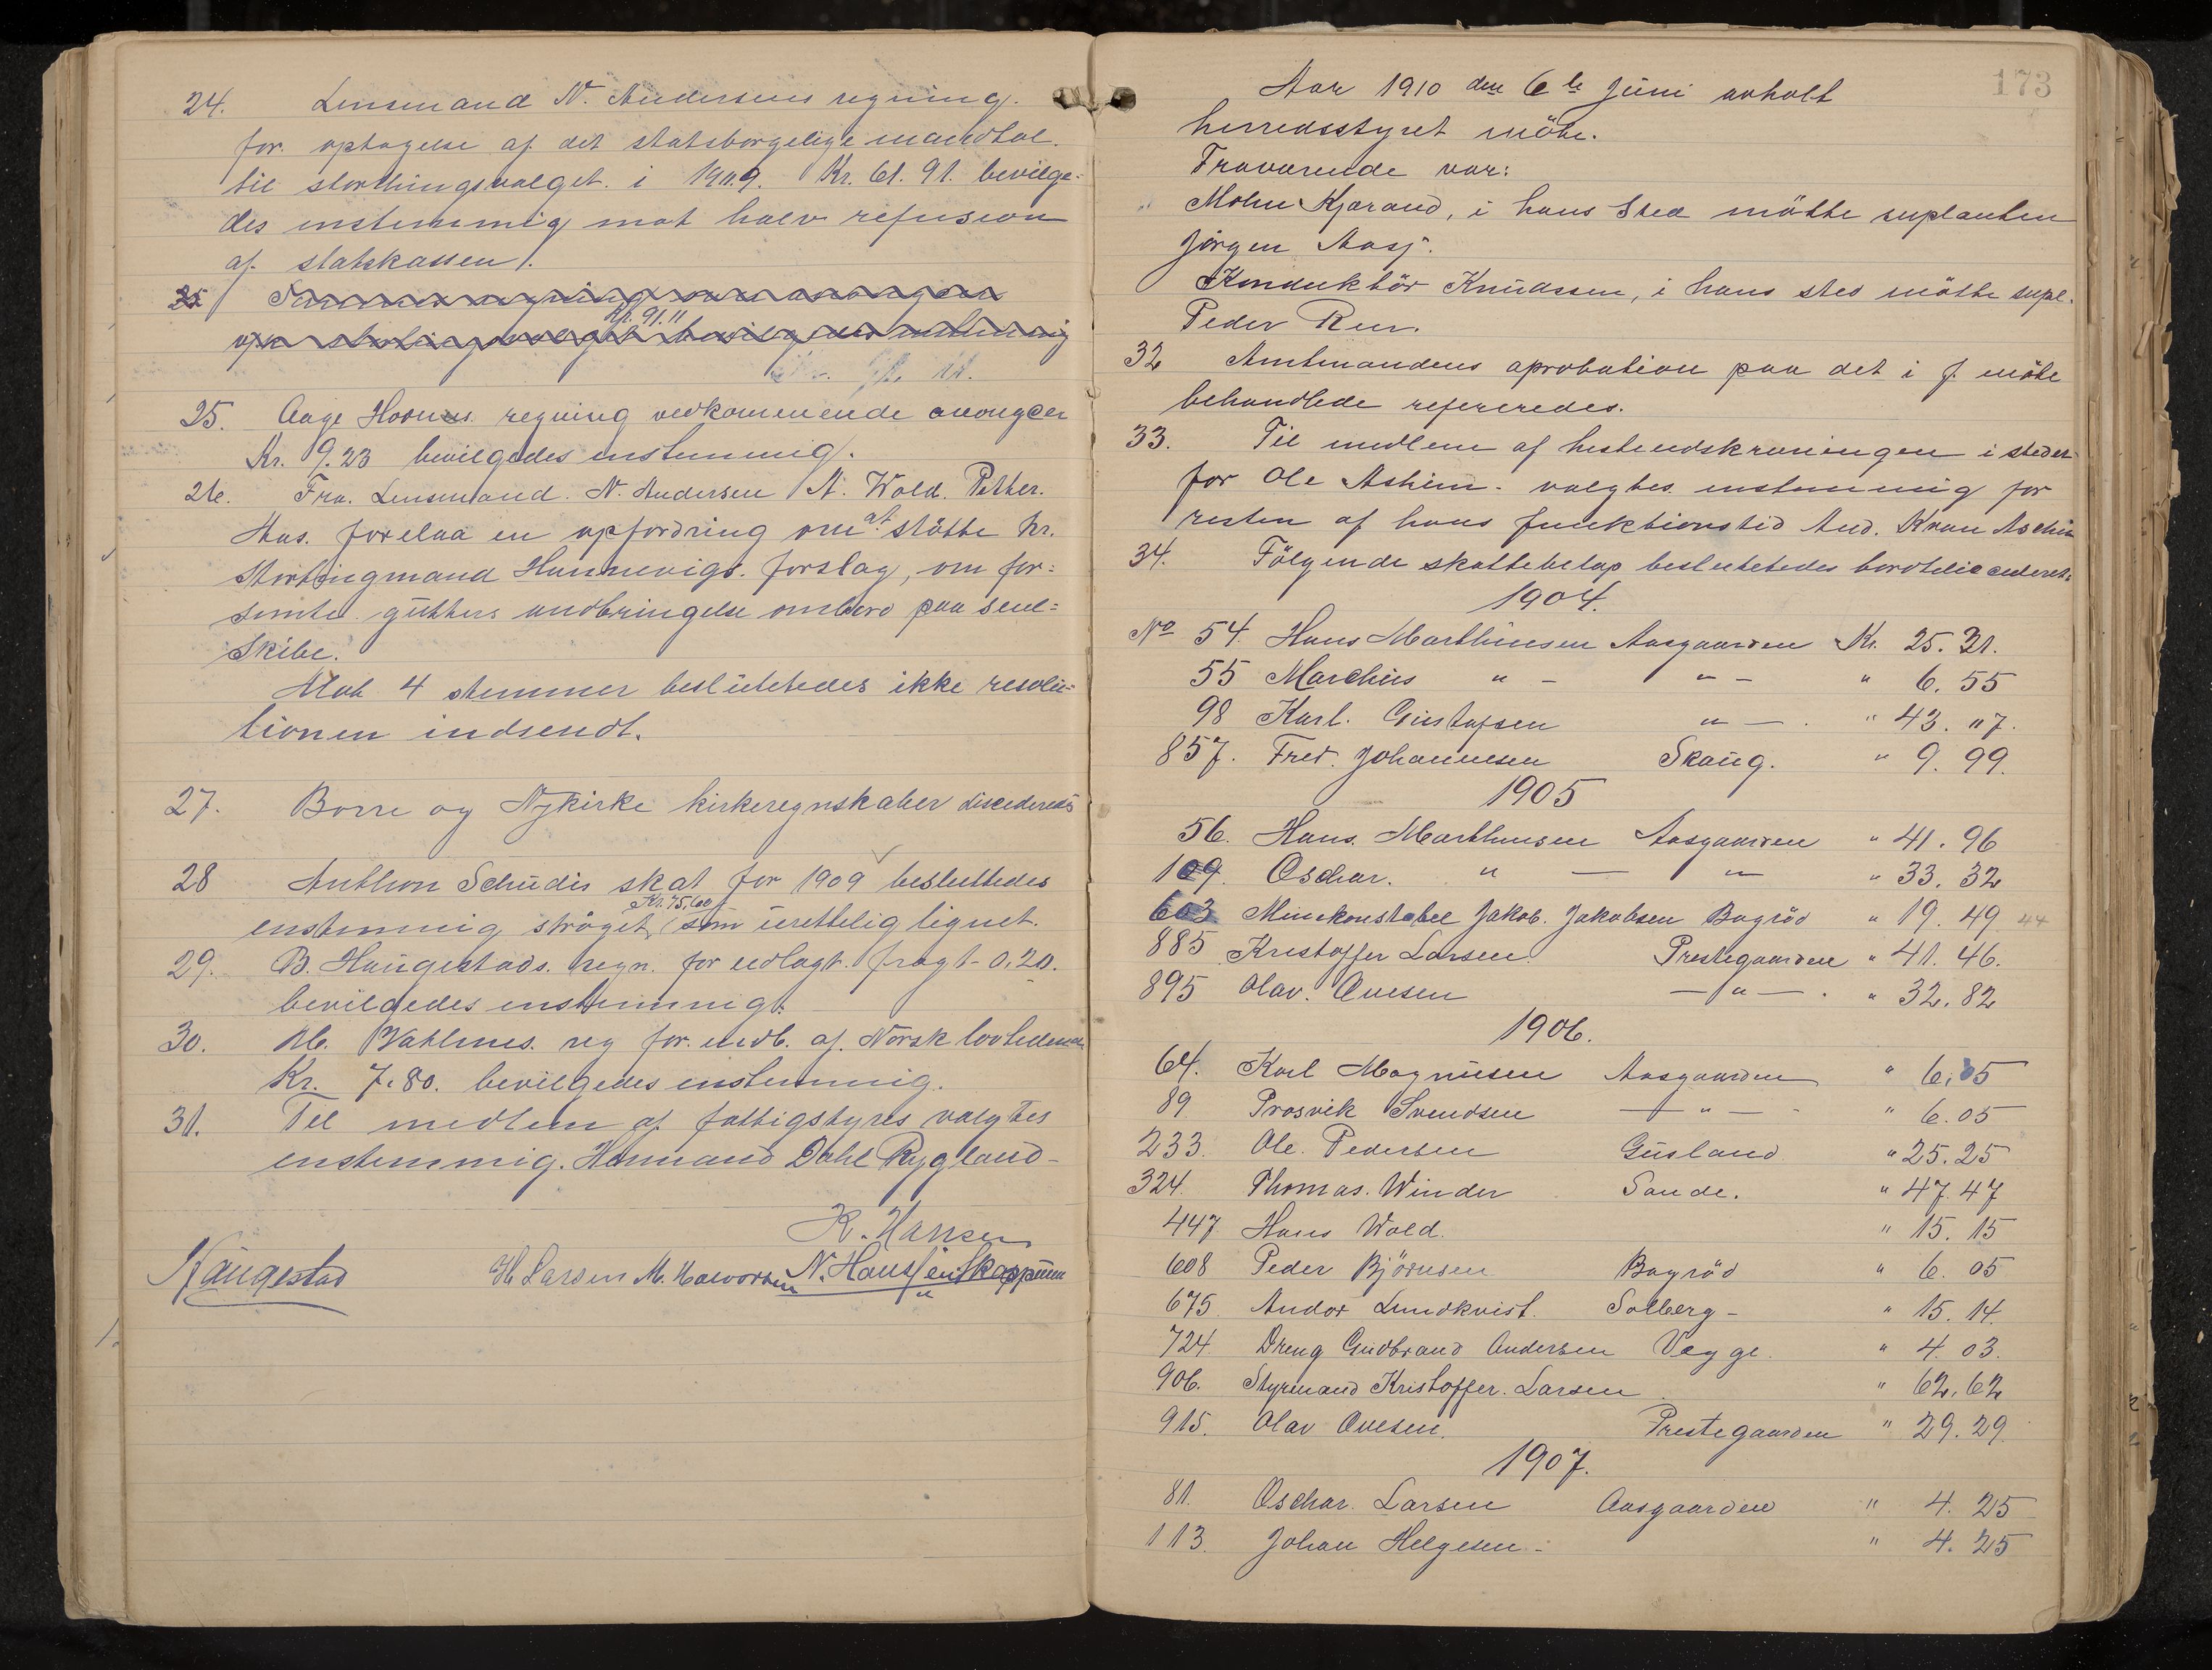 24. Lensmand N. Andersens regning.
for. optagelse af det statsborgelige mandtal.
til storthingsvalget. i 1909. Kr. 61. 91. bevilge-
des enstemmig mot halv refusion
af statskassen.
25
Kr. 91.11
25. Aage Hoenes. regning vedkommende avongcer
Kr. 9.23 bevilgedes enstemmig.
26. Fra. Lensmand. N. Andersen A. Wold. Petter.
Aas. forelaa en opfordring om at støtte hr.
Stortingmand Hannevigs. forslag, om for-
sømte gutters andbringelse ombord paa seil-
skibe.
Mot 4 stemmer besluttedes ikke resolu-
tionen indsendt.
27. Borre og Nykirke kirkeregnskaber disederedes
28 Anthon Schüdis skat for 1909 besluttedes
Kr. 75,60
enstemmig strøget, som urettelig lignet.
29. B. Haugestads. regn. for udlagt. fragt - 0,20.
bevilgedes enstemmigt.
30. Ab. Wahlmes. reg for. indb. af. Norsk lovtidende
Kr. 7.80. bevilgedes enstemmig.
31. Til medlem af fattigstyres valgtes
enstemmig. Hermand Dahl Rygland -
K. Hansen
Haugestad H Larsen M. Halvorsen N. Hanssen Skoppum
173
Aar 1910 den 6te Juni avholt
herredsstyret møte.
Fraværende var:
Mohn Kjærand, i hans sted møtte suplanten
Jørgen Aasj.
Konduktør Knudssen, i hans sted møtte supl.
Peder Reer.
32 Amtmandens aprobation paa det i f. møte
behandlede refereredes.
33. Til medlem af hesteudskrivningen i stedet
for Ole Askim - valgtes enstemmig for
resten af hans funktionstid And. Kran Aschim
34. Følgende skattebeløp besluttedes
1904.
No 54. Hans Marthinsen Aasgaarden Kr. 25. 31.
55 Marchus " - " - " 6. 55
98 Karl. Gustafsen " - . " 43. "7.
857. Fred. Johannesen Skaug. " 9. 99.
1905
56. Hans. Marthinsen Aasgaarden " 41. 96
109. Oschar. " — " " 33. 32
603 Minekonstabel Jakob. Jakobsen Bagrød " 19. 49 44
885 Kristoffer Larsen. Prestegaarden " 41. 46.
895 Olav. Ovesen — " — . " 32. 82
1906.
64. Karl Magnusen Aasgaarden " 6. 05
89 Prosvik Svendsen — " — - " 6. 05
233. Ole. Pedersen Gusland " 25. 25
324. Thomas. Winder Sande. " 47. 47
447 Hans Wold. " 15. 15
608 Peder Bjørnsen Bagrød " 6. 05
675 Andor Lundkvist. Solberg - " 15. 14.
724. Dreng Gudbrand Andersen Vegge. " 4. 03.
906. Styrmand Kristoffer. Larsen . " 62. 62
915. Olav Ovesen. Prestegaarden " 29. 29.
1907.
81. Oschar. Larsen Aasgaarden " 4. 25
113. Johan Helgesen - " 4. 25